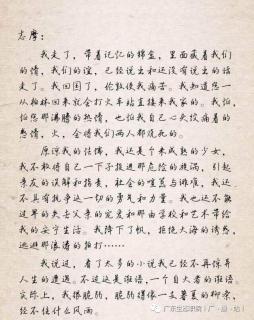 志摩：
我走了，带着记忆的锦盒，里面藏着我们
的情，我们的谊，已经说出和还没有说出的话
走了。我回国了，伦敦使我痛苦。我知道您一
从柏林回来就会打火车站直接来我家的。我怕，
怕您那沸腾的热情，也怕我自己心头绞痛着的
热情，火，会将我们两人都烧死的。
原谅我的怯懦，我还是个未成熟的少女，
我不敢将自己一下子投进那危险的旋涡，引起
亲友的误解和指责，社会的喧嚣与诽难，我还
不具有抗争这一切的勇气和力量。我也还不能
过早的失去父亲的宠爱和那由学校和艺术带给
我的安宁生活。我降下了帆，拒绝大海的诱惑，
逃避那浪涛的拍打……
我说过，看了太多的小说我已经不再惊异
人生的遭遇。不过这是诳语，一个自大者的诳语。
实际上，我很脆弱，脆弱得像一支暮夏的柳条，
经不住什么风雨。
广东生态职院（广·厦·站）